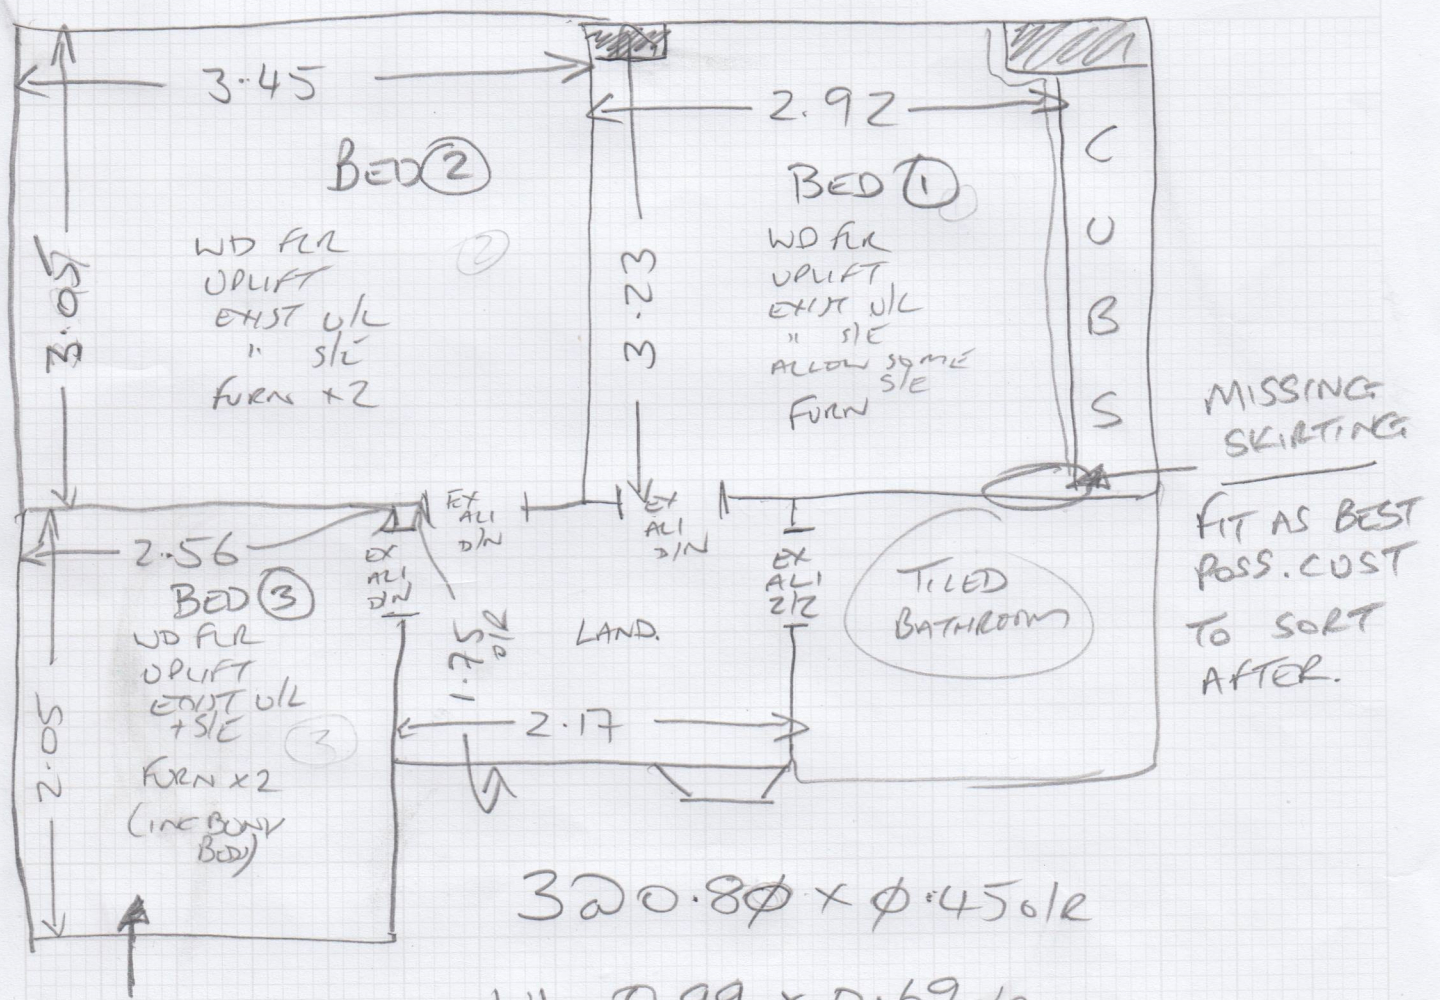 3.45
3.05
BED 2
WD FLR
UPLIFT
EXIST U/L
" S/E
FURN x2
2
2.92
3.23
BED 1
WD FLR
UPLIFT
EXIST U/L
" S/E
ALLOW SOME
S/E
FURN
C
U
B
S
MISSING
SKIRTING
FIT AS BEST
POSS. CUST
TO SORT
AFTER.
EX
ALI
D/N
EX
ALI
D/N
2.56
EX
ALI
D/N
BED 3
WD FLR
UPLIFT
EXIST U/L
+ S/E
3
FURN x2
(INC BUNK
BED)
2.05
1.75
O/R
LAND.
2.17
EX
ALI
Z/Z
TILED
BATHROOM
3@0.80 x 0.45 O/R
0.99 x 0.69